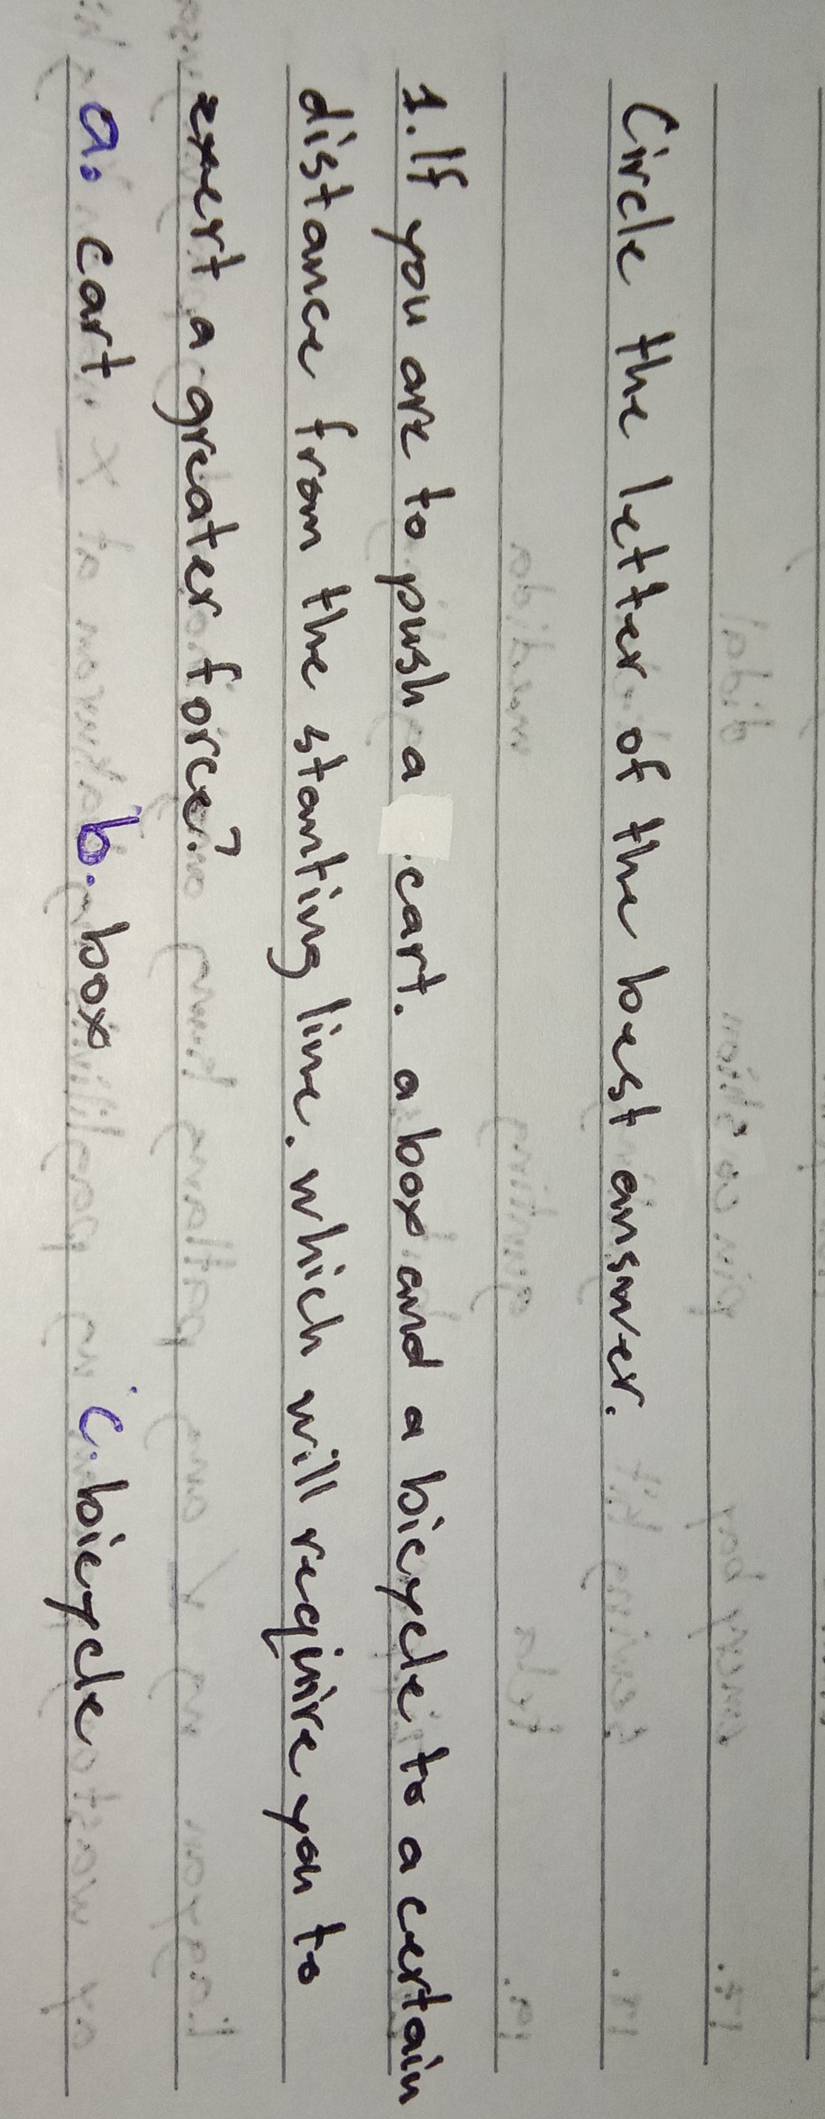 Circle the letter of the best answer.
1. If you are to push a cart. a box and a bicycle to a certain
distance from the starting line. which will require you to
exert a greater force?
a. cart b. box c. bicycle